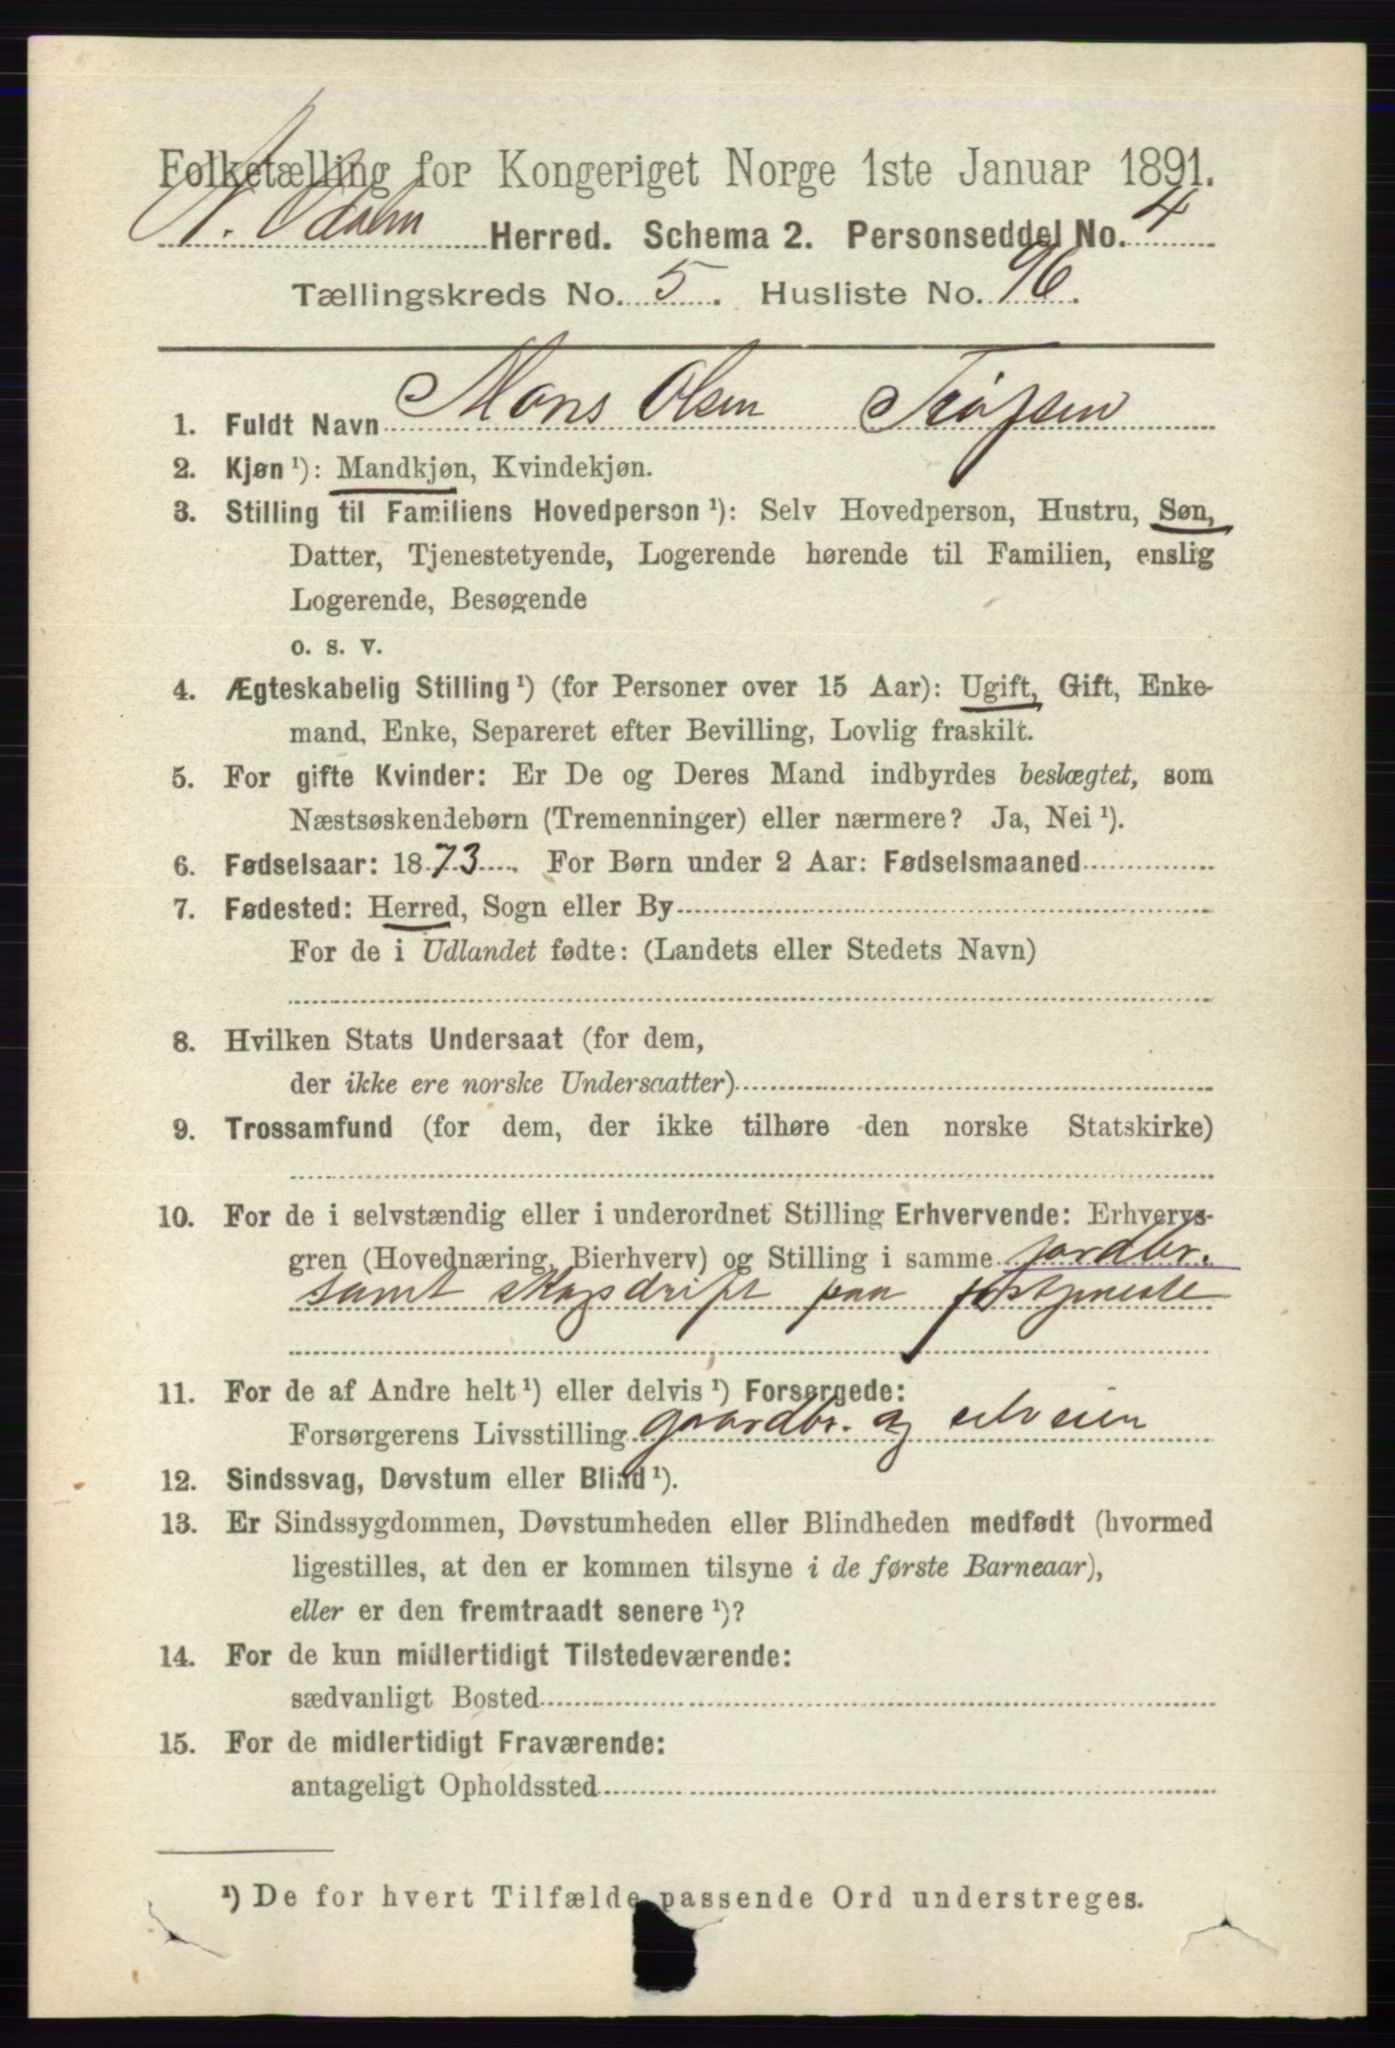 Folketælling for Kongeriget Norge 1ste Januar 1891.
N. Odalen Herred. Schema 2. Personseddel No. 4
Tællingskreds No. 5. Husliste No. 96.
1. Fuldt Navn Mons Olsen
2. Kjøn ¹): Mandkjøn, Kvindekjøn.
3. Stilling til Familiens Hovedperson ¹): Selv Hovedperson, Hustru, Søn,
Datter, Tjenestetyende, Logerende hørende til Familien, enslig
Logerende, Besøgende
o. s. v.
4. Ægteskabelig Stilling ¹) (for Personer over 15 Aar): Ugift, Gift, Enke-
mand, Enke, Separeret efter Bevilling, Lovlig fraskilt.
5. For gifte Kvinder: Er De og Deres Mand indbyrdes beslægtet, som
Næstsøskendebørn (Tremenninger) eller nærmere? Ja, Nei ¹).
6. Fødselsaar: 1873. For Børn under 2 Aar: Fødselsmaaned
7. Fødested: Herred, Sogn eller By
For de i Udlandet fødte: (Landets eller Stedets Navn)
8. Hvilken Stats Undersaat (for dem,
der ikke ere norske Undersaatter)
9. Trossamfund (for dem, der ikke tilhøre den norske Statskirke)
10. For de i selvstændig eller i underordnet Stilling Erhvervende: Erhvervs-
gren (Hovednæring, Bierhverv) og Stilling i samme jordbr.
samt skogsdrift paa
11. For de af Andre helt ¹) eller delvis ¹) Forsørgede:
Forsørgerens Livsstilling gaardbr. og selveier
12. Sindssvag, Døvstum eller Blind ¹).
13. Er Sindssygdommen, Døvstumheden eller Blindheden medfødt (hvormed
ligestilles, at den er kommen tilsyne i de første Barneaar),
eller er den fremtraadt senere ¹)?
14. For de kun midlertidigt Tilstedeværende:
sædvanligt Bosted
15. For de midlertidigt Fraværende:
antageligt Opholdssted
¹) De for hvert Tilfælde passende Ord understreges.